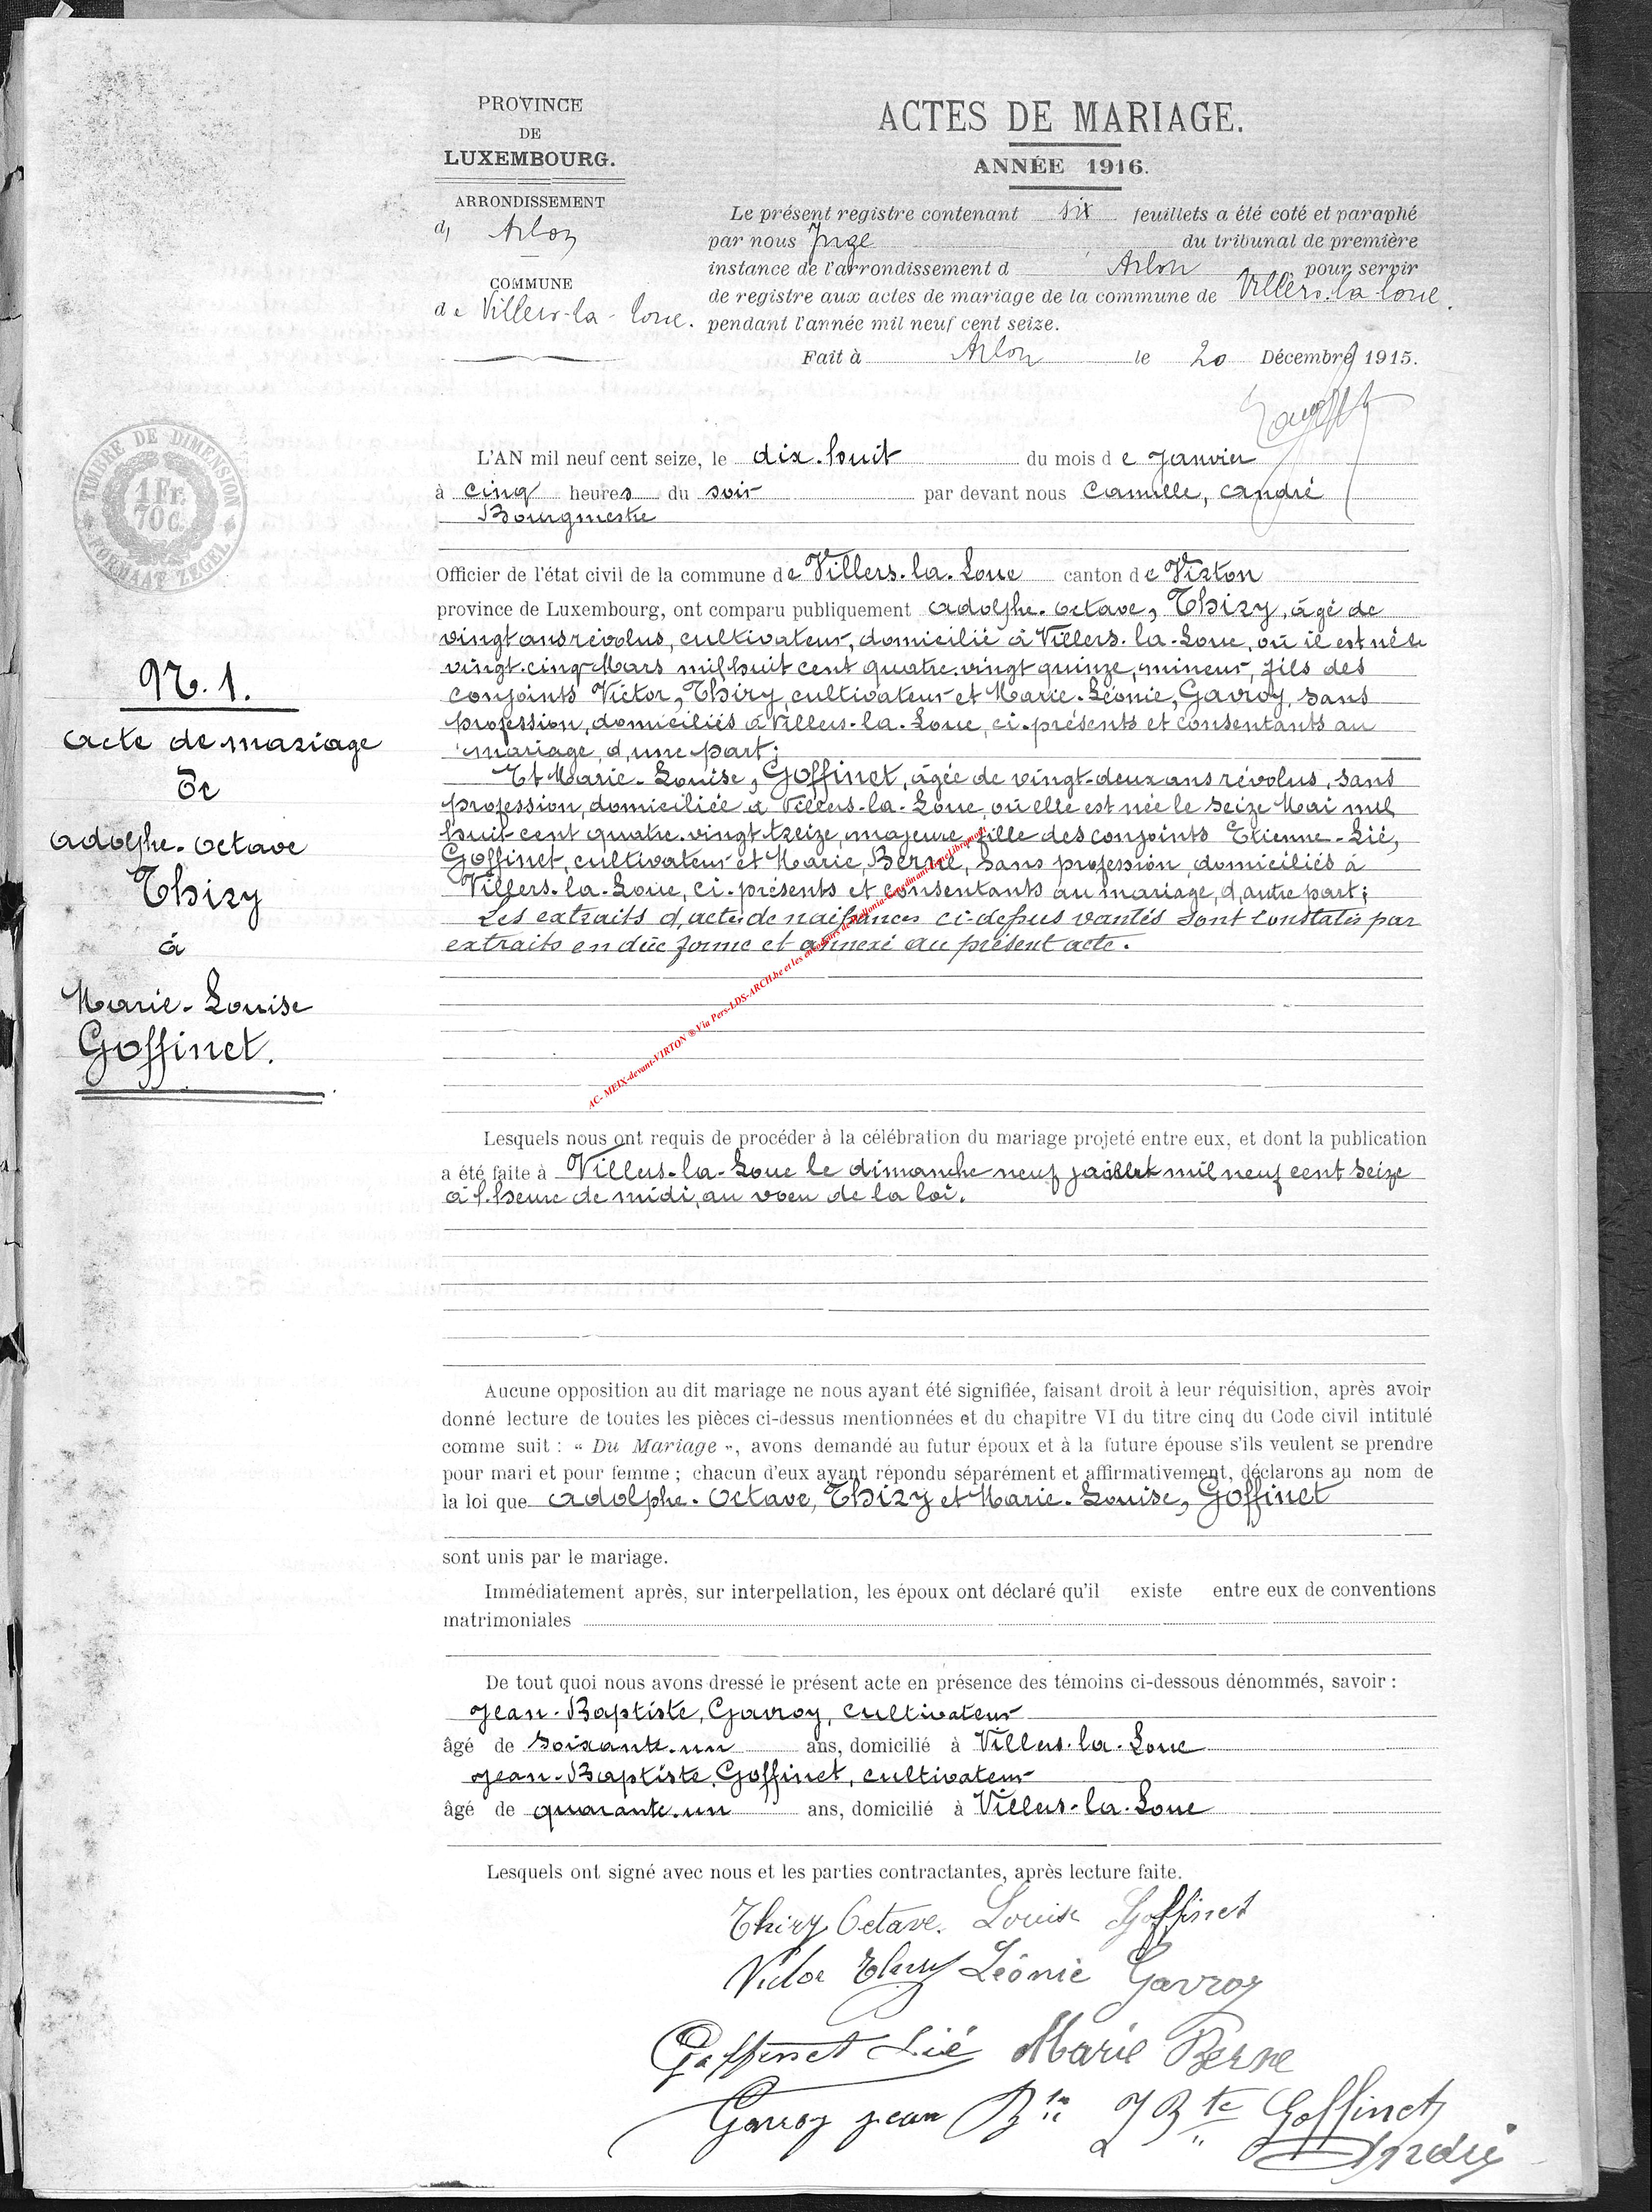 PROVINCE
DE
LUXEMBOURG.
ARRONDISSEMENT
d' Arlon
COMMUNE
de Villers-la-Loue.
ACTES DE MARIAGE.
ANNÉE 1916.
Le présent registre contenant six feuillets a été coté et paraphé
par nous Juge du tribunal de première
instance de l'arrondissement d Arlon pour servir
de registre aux actes de mariage de la commune de Villers-la-Loue.
pendant l'année mil neuf cent seize.
Fait à Arlon le 20 Décembre 1915.
TIMBRE DE DIMENSION
1 Fr.
70 C.
FORMAAT ZEGEL
N. 1.
Acte de mariage
De
Adolphe-Octave
Thiry
à
Marie-Louise
Goffinet.
L'AN mil neuf cent seize, le dix-huit du mois de Janvier
à cinq heures du soir par devant nous Camille, André
Bourgmestre
Officier de l'état civil de la commune de Villers-la-Loue canton de Virton
province de Luxembourg, ont comparu publiquement Adolphe-Octave, Thiry, âgé de
vingt ans révolus, cultivateur, domicilié à Villers-la-Loue, où il est né le
vingt-cinq Mars mil huit cent quatre-vingt quinze, mineur, fils des
conjoints Victor, Thiry, cultivateur et Marie-Léonie, Gavroy, sans
profession, domiciliés à Villers-la-Loue, ci-présents et consentants au
mariage, d'une part;
Et Marie-Louise, Goffinet, âgée de vingt-deux ans révolus, sans
profession, domiciliée à Villers-la-Loue, où elle est née le seize Mai mil
huit-cent quatre-vingt treize, majeure, fille des conjoints Etienne-Lié,
Goffinet, cultivateur et Marie, Berne, sans profession, domiciliés à
Villers-la-Loue, ci-présents et consentants au mariage, d'autre part;
Les extraits d'acte de naissances ci-dessus vantés sont constatés par
extraits en due forme et annexé au présent acte.
AC- MEIX-devant-VIRTON ® Via Pers-LDS-ARCH.be et les
Lesquels nous ont requis de procéder à la célébration du mariage projeté entre eux, et dont la publication
a été faite à Villers-la-Loue le dimanche neuf mil neuf cent seize
à l'heure de midi, au voeu de la loi.
Aucune opposition au dit mariage ne nous ayant été signifiée, faisant droit à leur réquisition, après avoir
donné lecture de toutes les pièces ci-dessus mentionnées et du chapitre VI du titre cinq du Code civil intitulé
comme suit : « Du Mariage », avons demandé au futur époux et à la future épouse s'ils veulent se prendre
pour mari et pour femme ; chacun d'eux ayant répondu séparément et affirmativement, déclarons au nom de
la loi que Adolphe-Octave, Thiry et Marie-Louise, Goffinet
sont unis par le mariage.
Immédiatement après, sur interpellation, les époux ont déclaré qu'il existe entre eux de conventions
matrimoniales
De tout quoi nous avons dressé le présent acte en présence des témoins ci-dessous dénommés, savoir :
Jean-Baptiste, Gavroy, cultivateur
âgé de soixante-un ans, domicilié à Villers-la-Loue
Jean-Baptiste, Goffinet, cultivateur
âgé de quarante-un ans, domicilié à Villers-la-Loue
Lesquels ont signé avec nous et les parties contractantes, après lecture faite.
Thiry Octave. Louise Goffinet
Victor Thiry Léonie Gavroy
Goffinet Lié Marie Berne
Gavroy jean Bte J Bte Goffinet
André